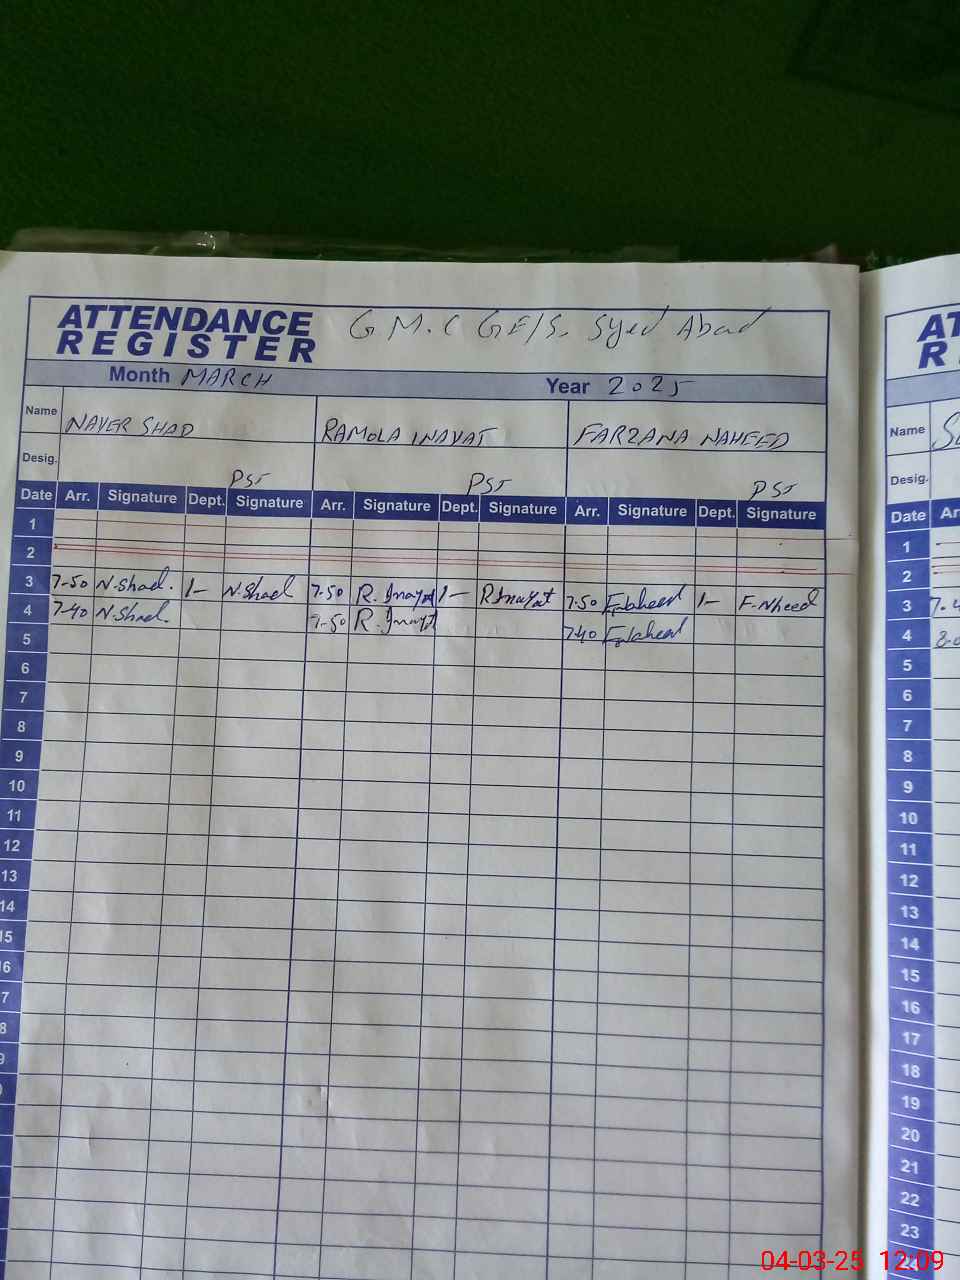 ATTENDANCE REGISTER G M.C GE/S. Syed Abad
Month MARCH Year 2025
Name NAYER SHAD RAMOLA INAYAT FARZANA NAHEED
Desig. PST PST PST
Date Arr. Signature Dept. Signature Arr. Signature Dept. Signature Arr. Signature Dept. Signature
1
2
3 7-50 N.Shad. 1- N.Shad 7-50 R.Inayat 1- R.Inayat 7-50 1- F.Nheed
4 7-40 N.Shad. 7-50 R.Inayat 7-40
5
6
7
8
9
10
11
12
13
14
15
Name
Desig.
Date
1
2
3
4
5
6
7
8
9
10
11
12
13
14
15
16
17
18
19
20
21
22
23
04-03-25 12:09